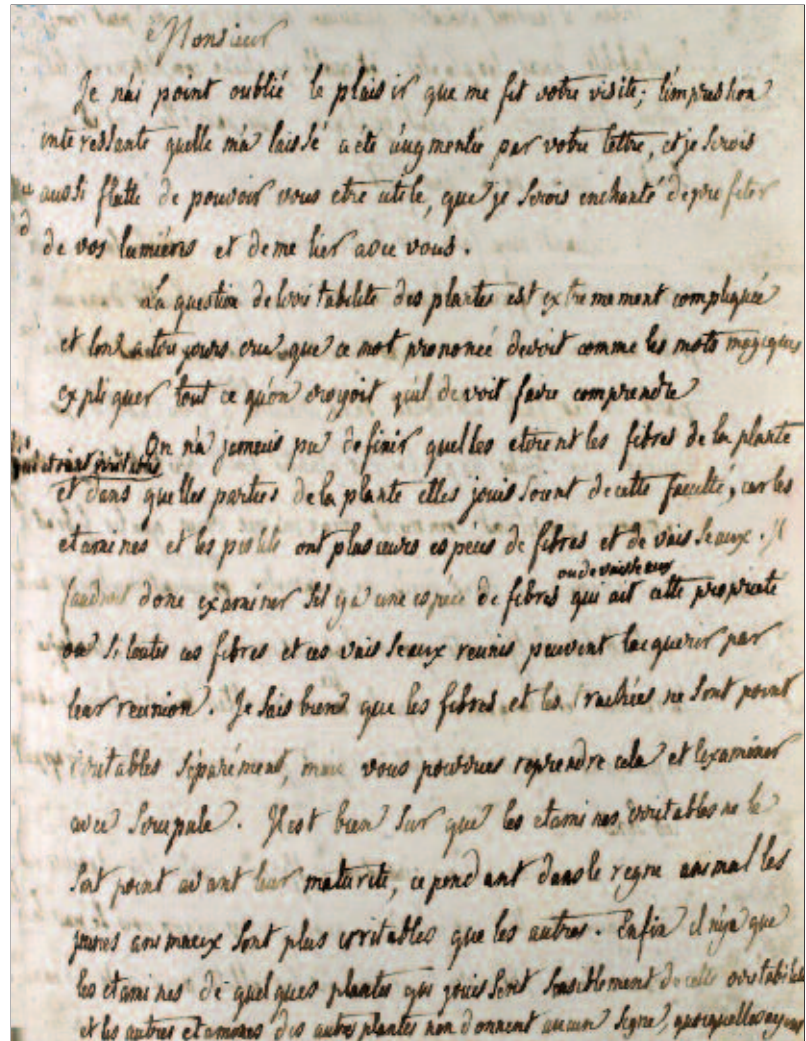 Monsieur
Je n'ai point oublié le plaisir que me fit votre visite; l'impression
interessante quelle m'a laissé a été augmentée par votre lettre, et je serois
aussi flatté de pouvoir vous etre utile, que je serois enchanté de profiter
de vos lumières et de me lier avec vous.
La question de l'irritabilité des plantes est extremement compliquée
et l'on a toujours cru que ce mot prononcé devoit comme les mots magiques
expliquer tout ce qu'on croyoit qu'il devoit faire comprendre
On n'a jamais pu definir quelles etoient les fibres de la plante
qui etoient irritables
et dans quelles parties de la plante elles jouissoient de cette faculté, car les
etamines et les pistils ont plusieurs espèces de fibres et de vaisseaux. Il
ou de vaisseaux
faudroit donc examiner s'il y a une espèce de fibres qui ait cette propriete
ou si toutes ces fibres et ces vaisseaux reunis peuvent l'acquerir par
leur reunion. Je sais bien que les fibres et les trachées ne sont point
irritables séparément, mais vous pourries reprendre cela et l'examiner
avec scrupule. Il est bien sur que les etamines irritables ne le
sont point avant leur maturité, cependant dans le regne animal les
jeunes animaux sont plus irritables que les autres. Enfin il n'y a que
les etamines de quelques plantes qui jouissent sensiblement de cette irritabilité
et les autres etamines des autres plantes n'en donnent aucun signe, quoiqu'elles ayent